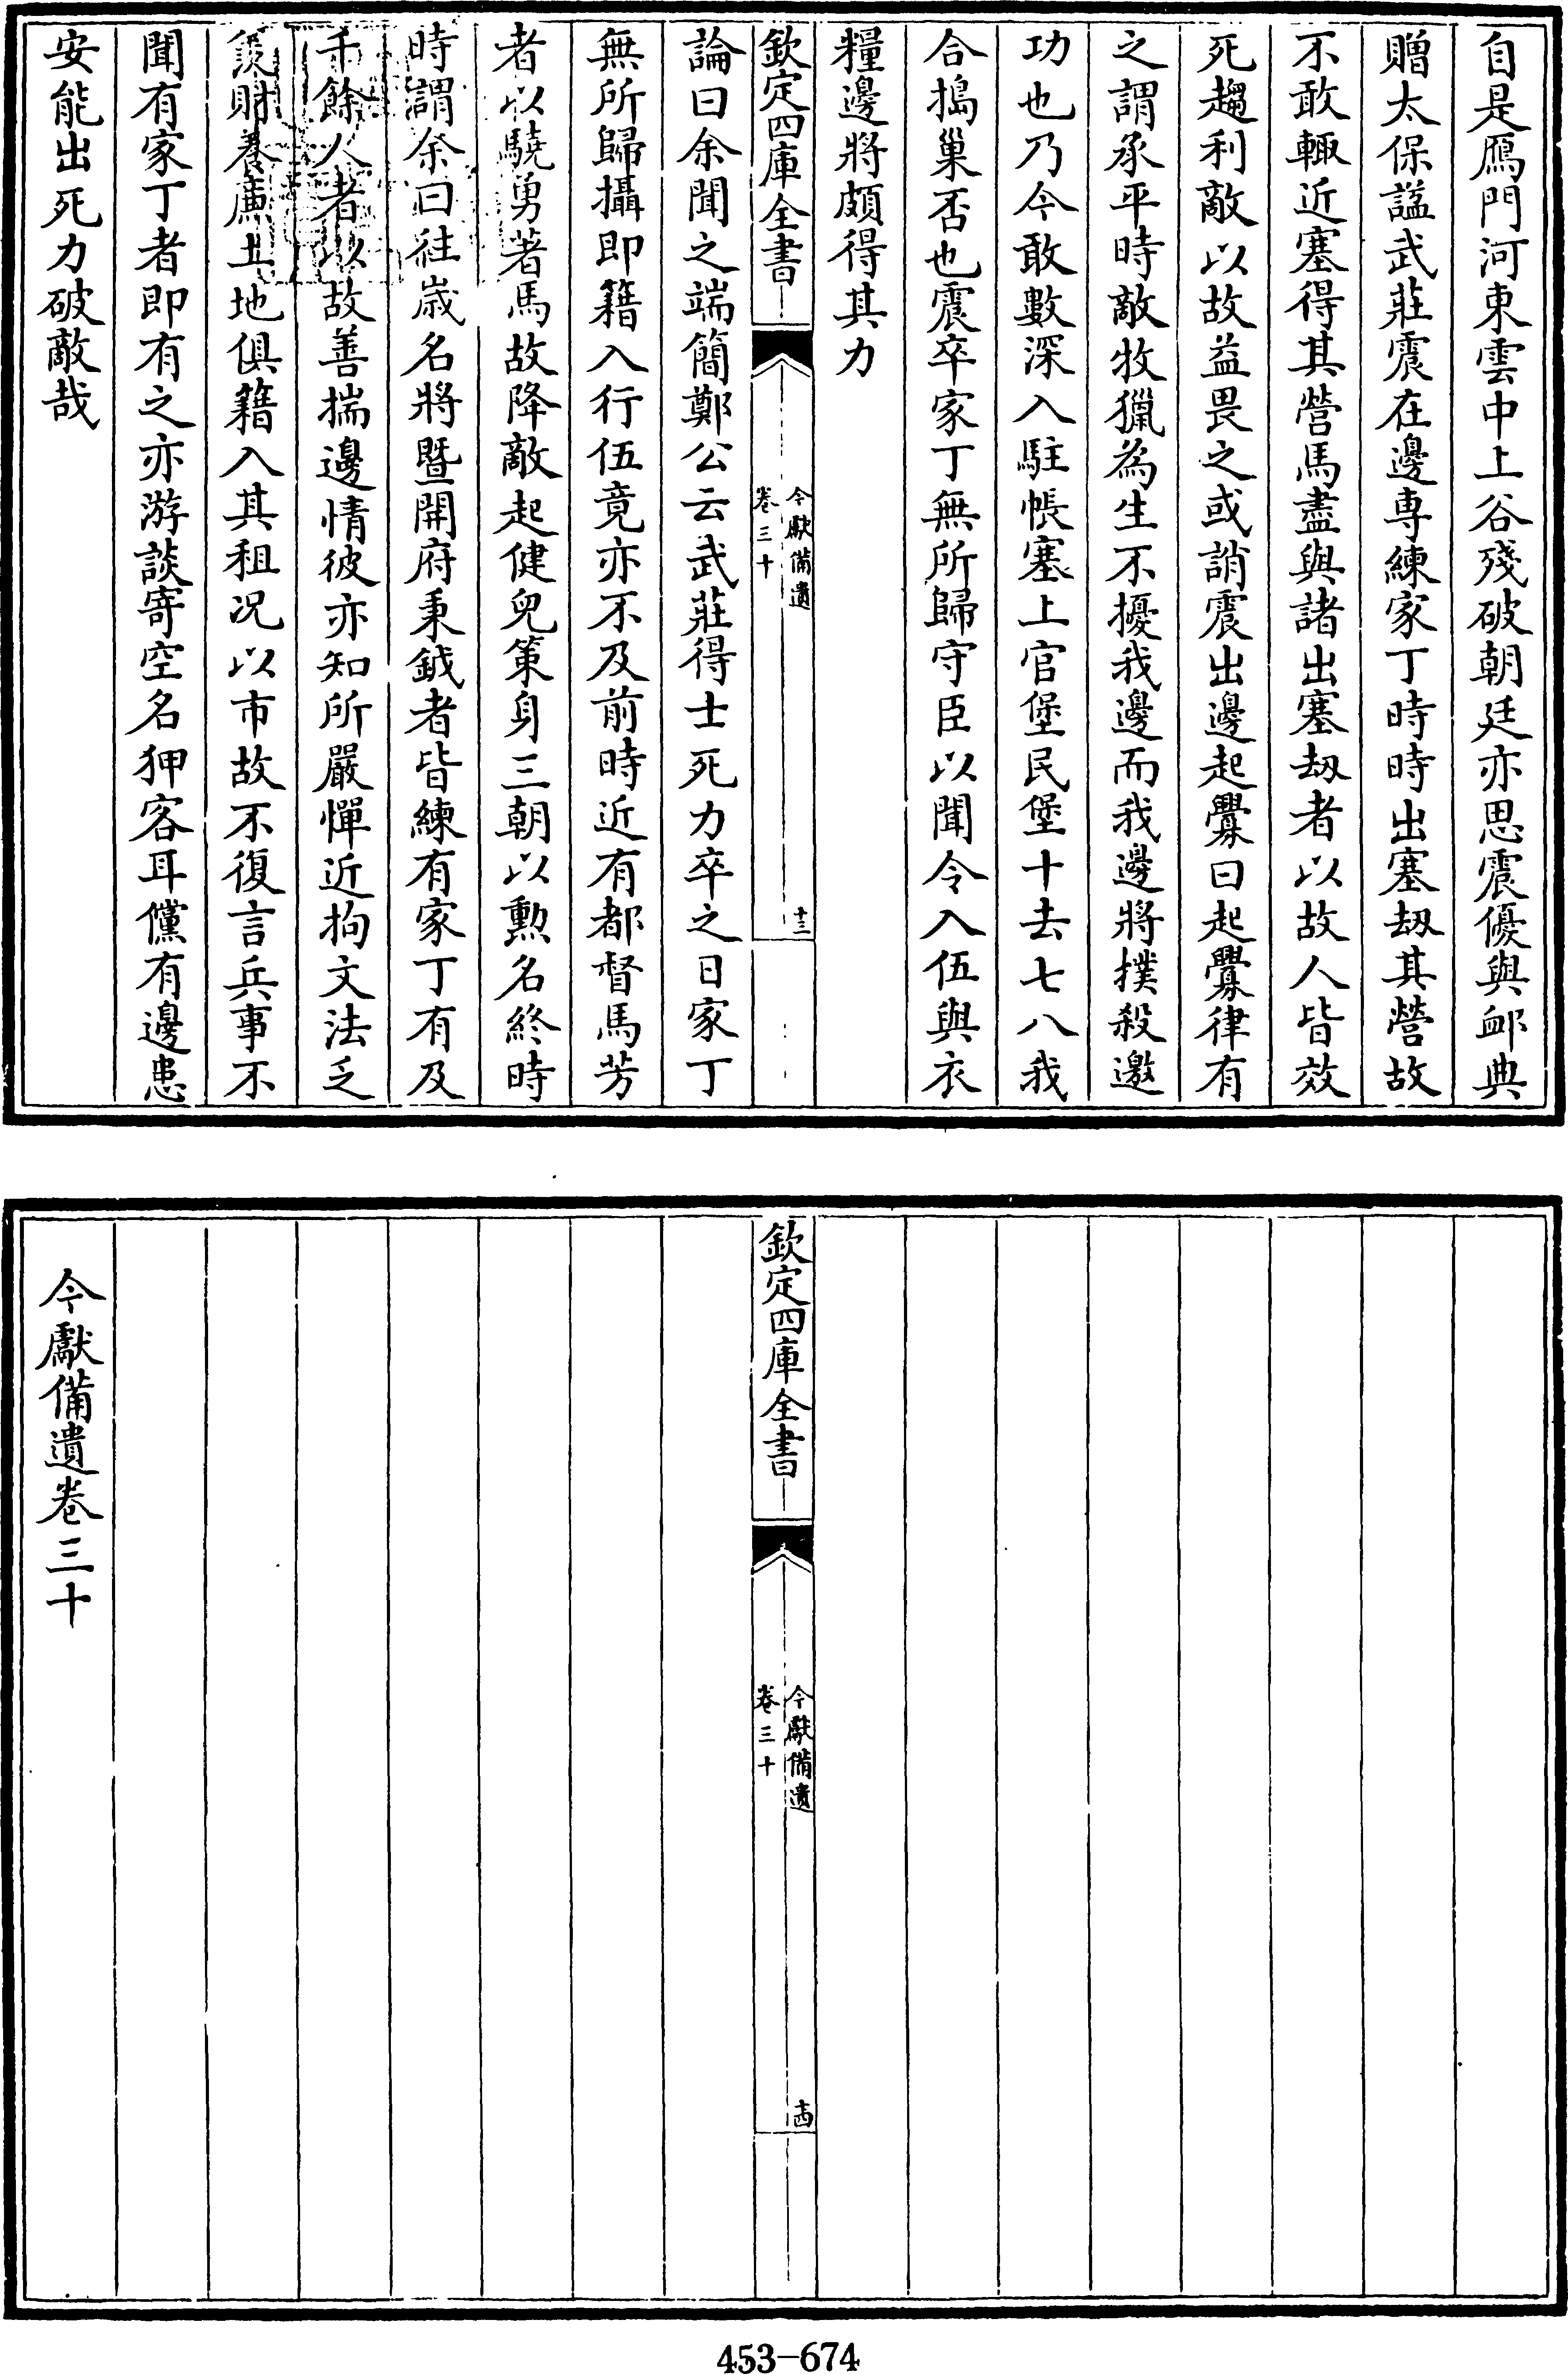 自是鴈門河東雲中上谷殘破朝廷亦思震優與卹典
贈太保諡武莊震在邊専練家丁時時出塞刼其營故
不敢輙近塞得其營馬盡與諸出塞刼者以故人皆效
死趨利敵以故益畏之或誚震出邊起釁曰起釁律有
之謂承平時敵牧獵為生不擾我邊而我邊將撲殺邀
功也乃今敢數深入駐帳塞上官堡民堡十去七八我
合搗巢否也震卒家丁無所歸守臣以聞令入伍與衣
糧邊將頗得其力
欽定四庫全書
今獻備遺
卷三十
十三
論曰余聞之端簡鄭公云武莊得士死力卒之日家丁
無所歸攝即籍入行伍竟亦不及前時近有都督馬芳
者以驍勇著馬故降敵起健兒策身三朝以勲名終時
時謂余曰往嵗名將暨開府秉鉞者皆練有家丁有及
千餘人者以故善揣邊情彼亦知所嚴憚近拘文法乏
羨財養廉土地俱籍入其租况以市故不復言兵事不
聞有家丁者即有之亦游談寄空名狎客耳儻有邊患
安能出死力破敵哉
欽定四庫全書
今獻備遺
卷三十
十四
今獻備遺卷三十
453-674